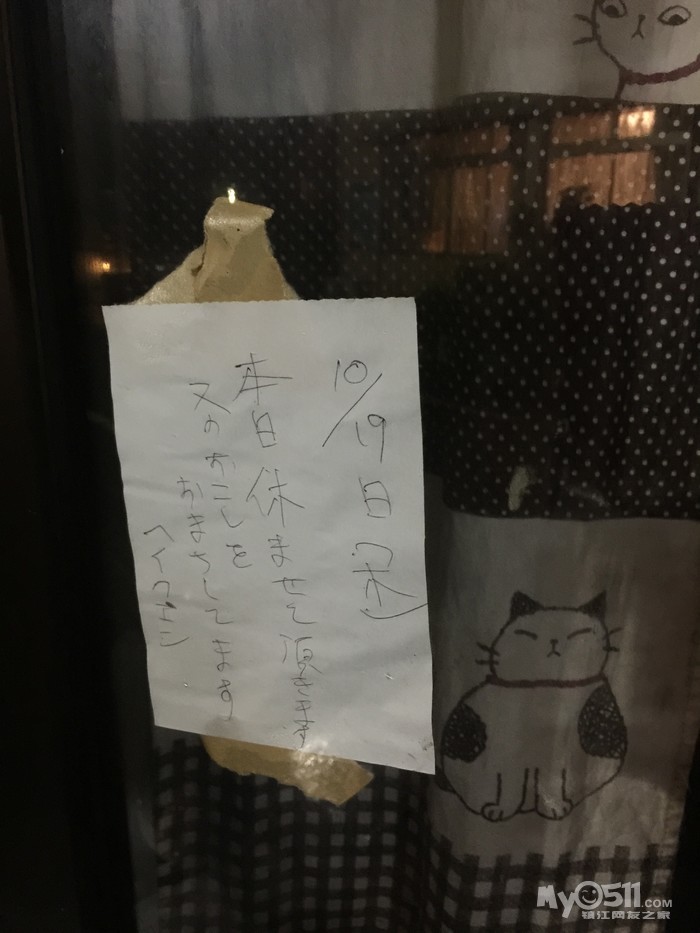 10/19日(水)
本日休ませて頂きます
又のおこしを
おまちしてます
My0511.COM
镇江网友之家